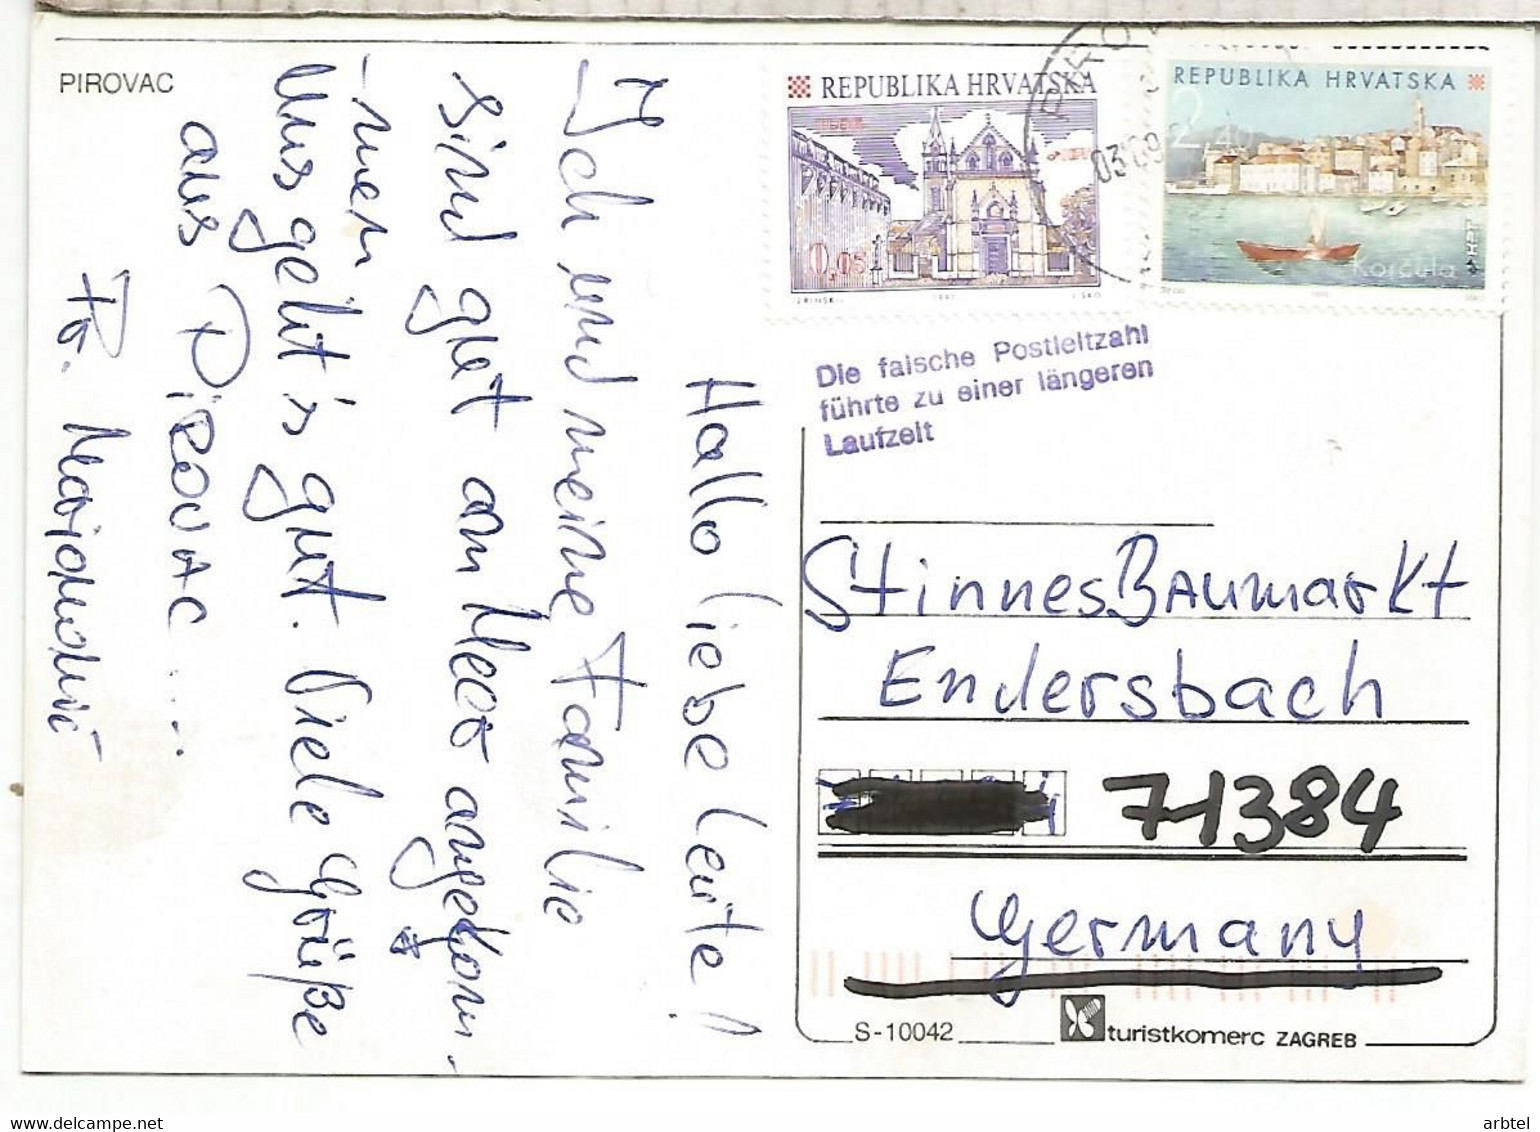 PIROVAC
Hallo liebe Leute!
Ich und meine Familie
sind gut am Meer angekom-
-men
Uns geht's gut. Viele Grüße
aus PiROVAC ....
REPUBLIKA HRVATSKA
0,05
1997
REPUBLIKA HRVATSKA
2
Korčula
Die falsche Postleitzahl
führte zu einer längeren
Laufzeit
Stinnes BAumarkt
Endersbach
71384
Germany
S-10042
turistkomerc ZAGREB
www.delcampe.net
arbtel